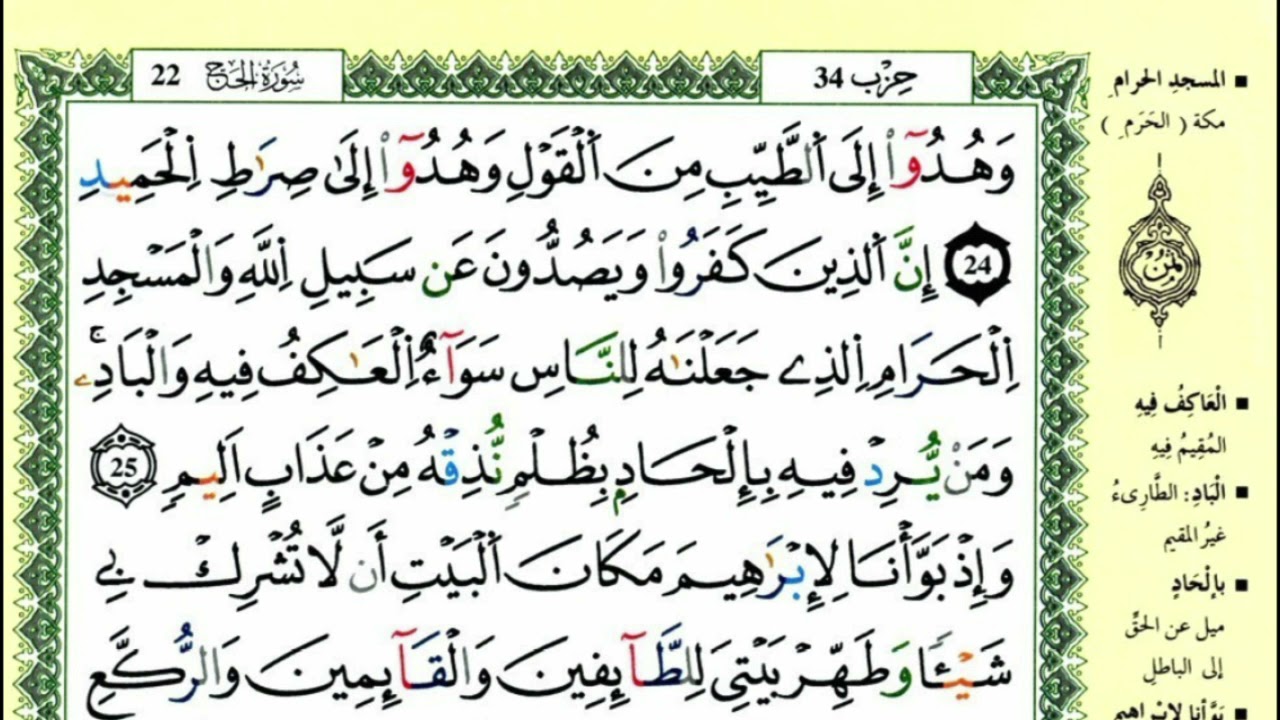 حِزْب 34
سُورَةُ الحَجّ 22
وَهُدُوٓاْ إِلَى اَلطَّيِّبِ مِنَ اَلْقَوْلِ وَهُدُوٓاْ إِلَىٰ صِرَٰطِ اِلْحَمِيدِ
24 إِنَّ اَلذِينَ كَفَرُواْ وَيَصُدُّونَ عَن سَبِيلِ اِللَّهِ وَالْمَسْجِدِ
اِلْحَرَامِ اِلذِے جَعَلْنَٰهُ لِلنَّاسِ سَوَآءٌ اِلْعَٰكِفُ فِيهِ وَالْبَادِۦ
وَمَنْ يُّرِدْ فِيهِ بِإِلْحَادِۢ بِظُلْمٖ نُّذِقْهُ مِنْ عَذَابٍ اَلِيمٖ 25
وَإِذْ بَوَّأْنَا لِإِبْرَٰهِيمَ مَكَانَ اَلْبَيْتِ أَن لَّا تُشْرِكْ بِے
شَيْـٔاٗ وَطَهِّرْ بَيْتِيَ لِلطَّآئِفِينَ وَالْقَآئِمِينَ وَالرُّكَّعِ
■ المسجدِ الحرامِ
مكة ( الحَرَمِ )
■ الْعَاكِفُ فِيهِ
المُقِيمُ فِيهِ
■ الْبَادِ: الطَّارِىءُ
غيرُ المقيم
■ بإلْحَادٍ
ميل عن الحقِّ
إلى الباطلِ
■ بَوَّأنا لإبراهيم